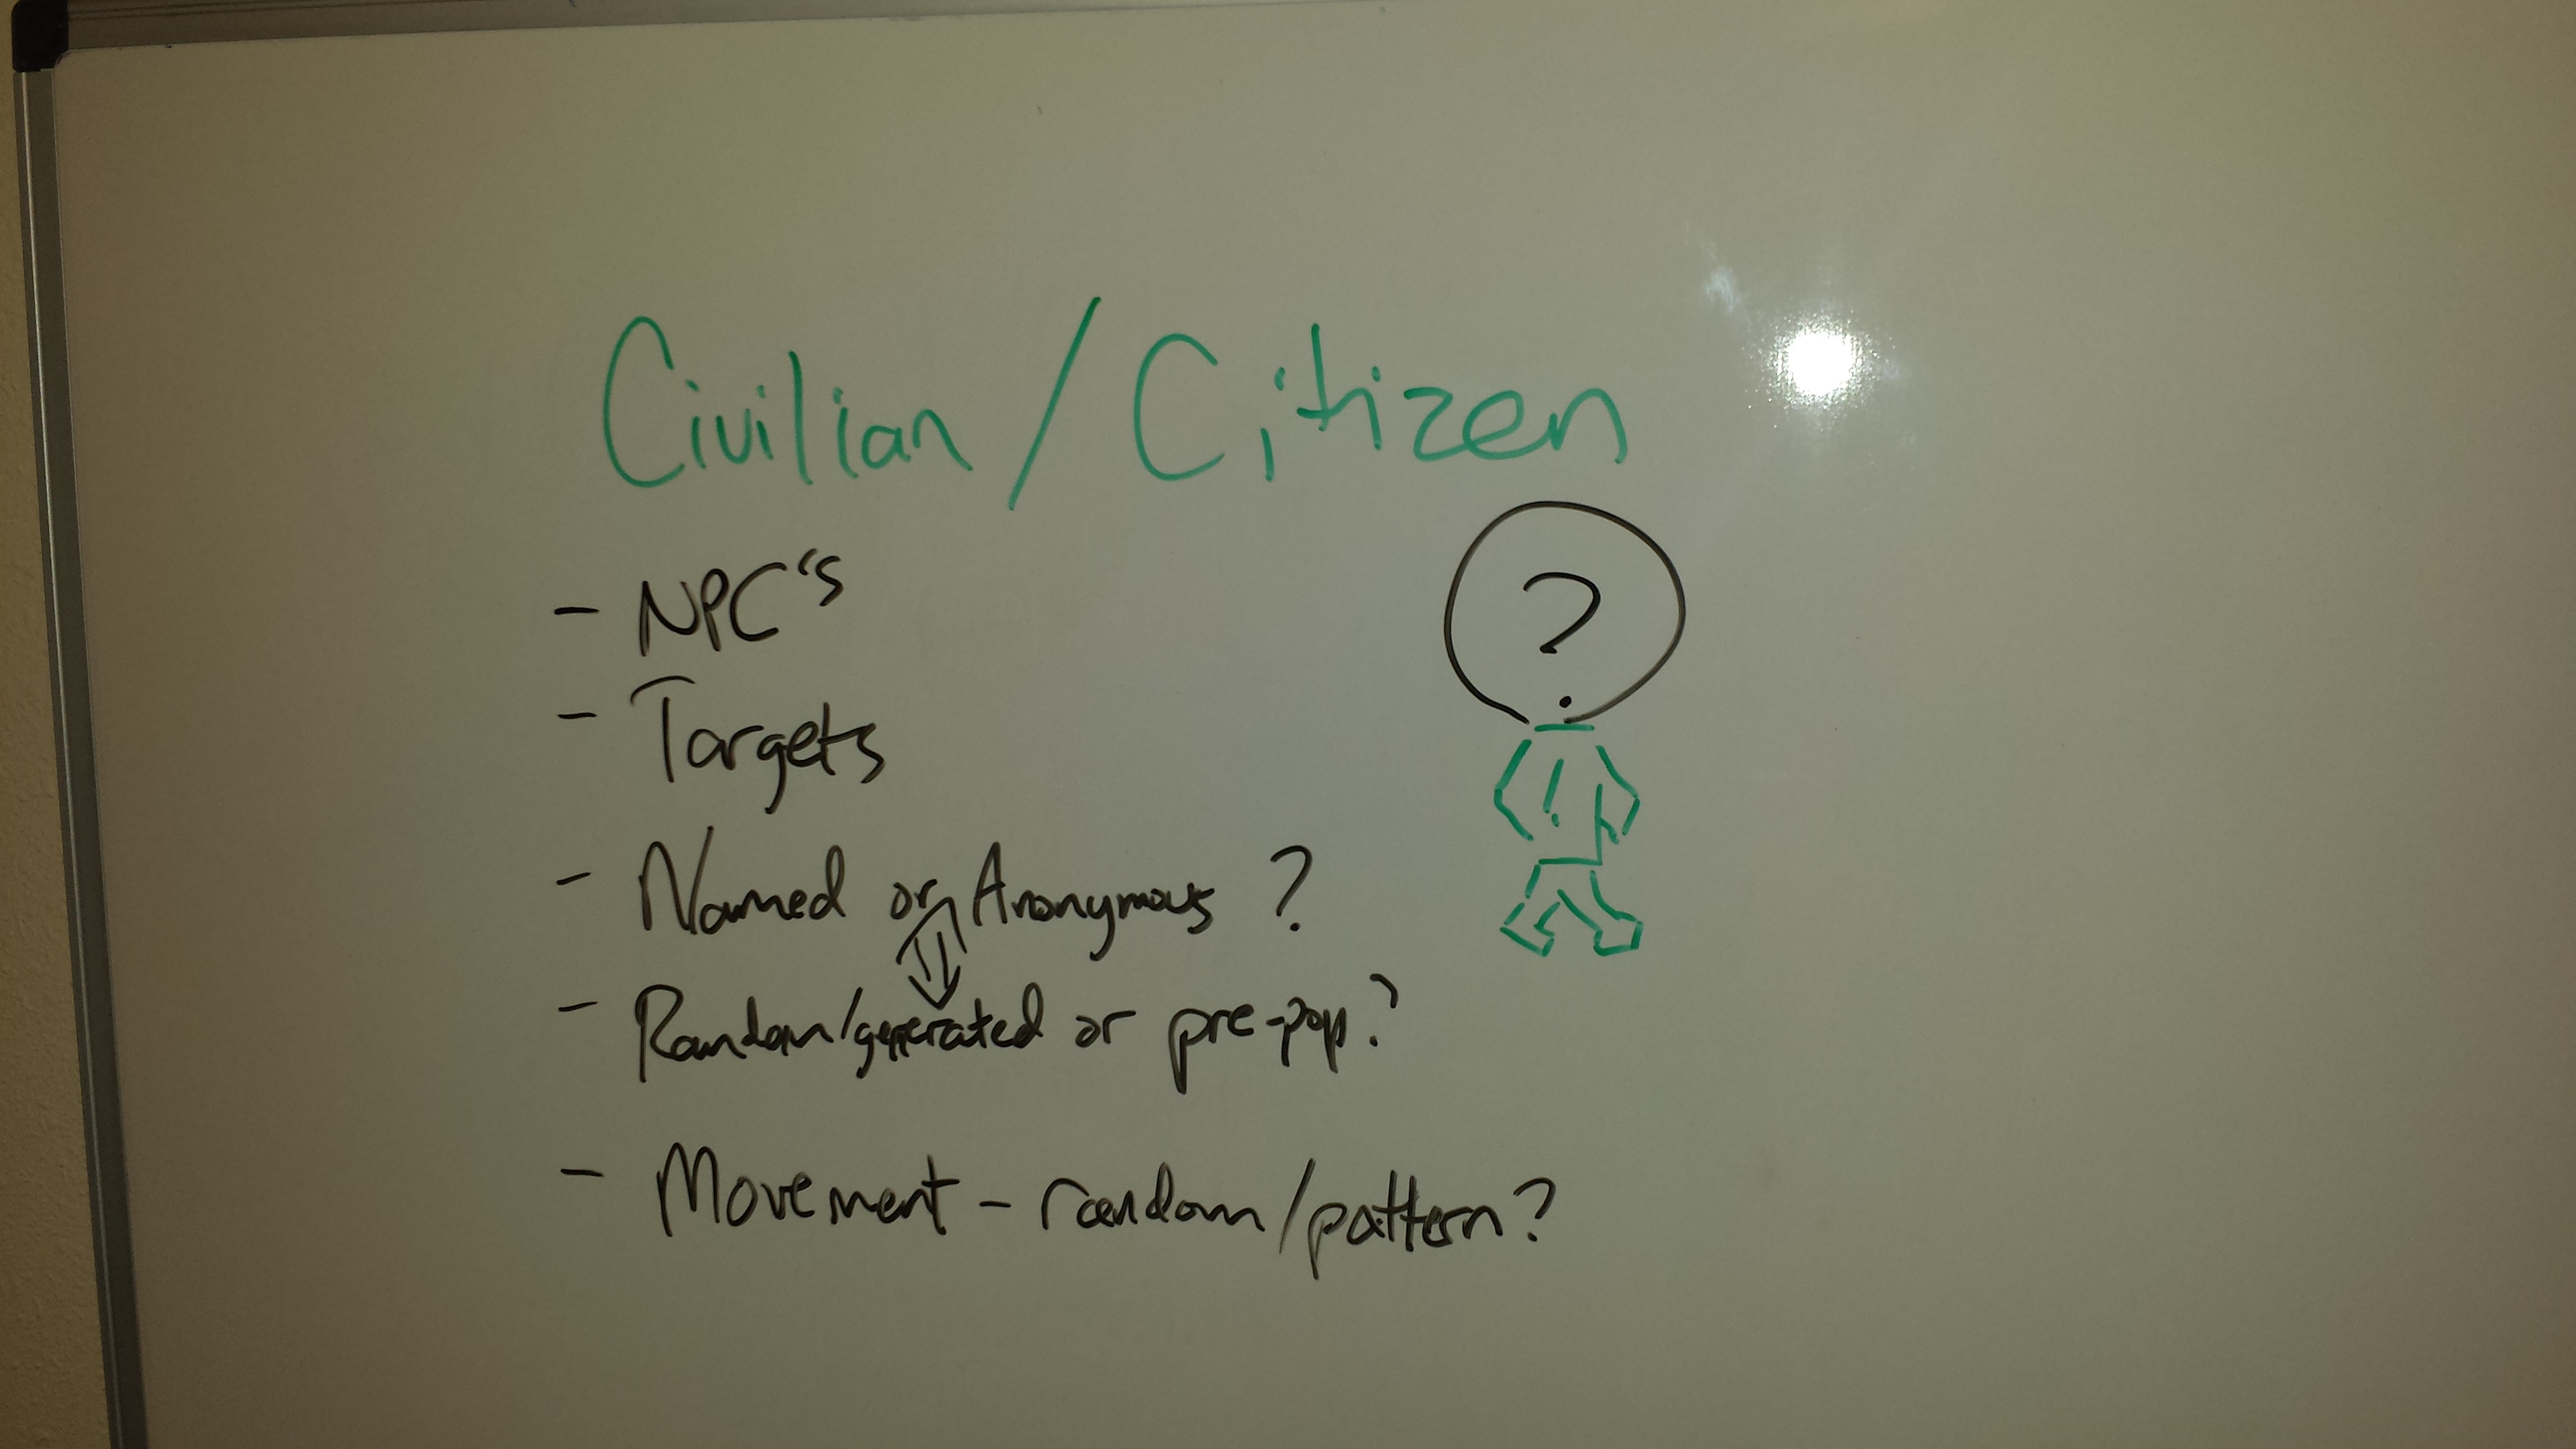 Civilian / Citizen
- NPC's
- Targets
- Named or Anonymous ?
- Random/generated or pre-pop?
- Movement - random/pattern?
?